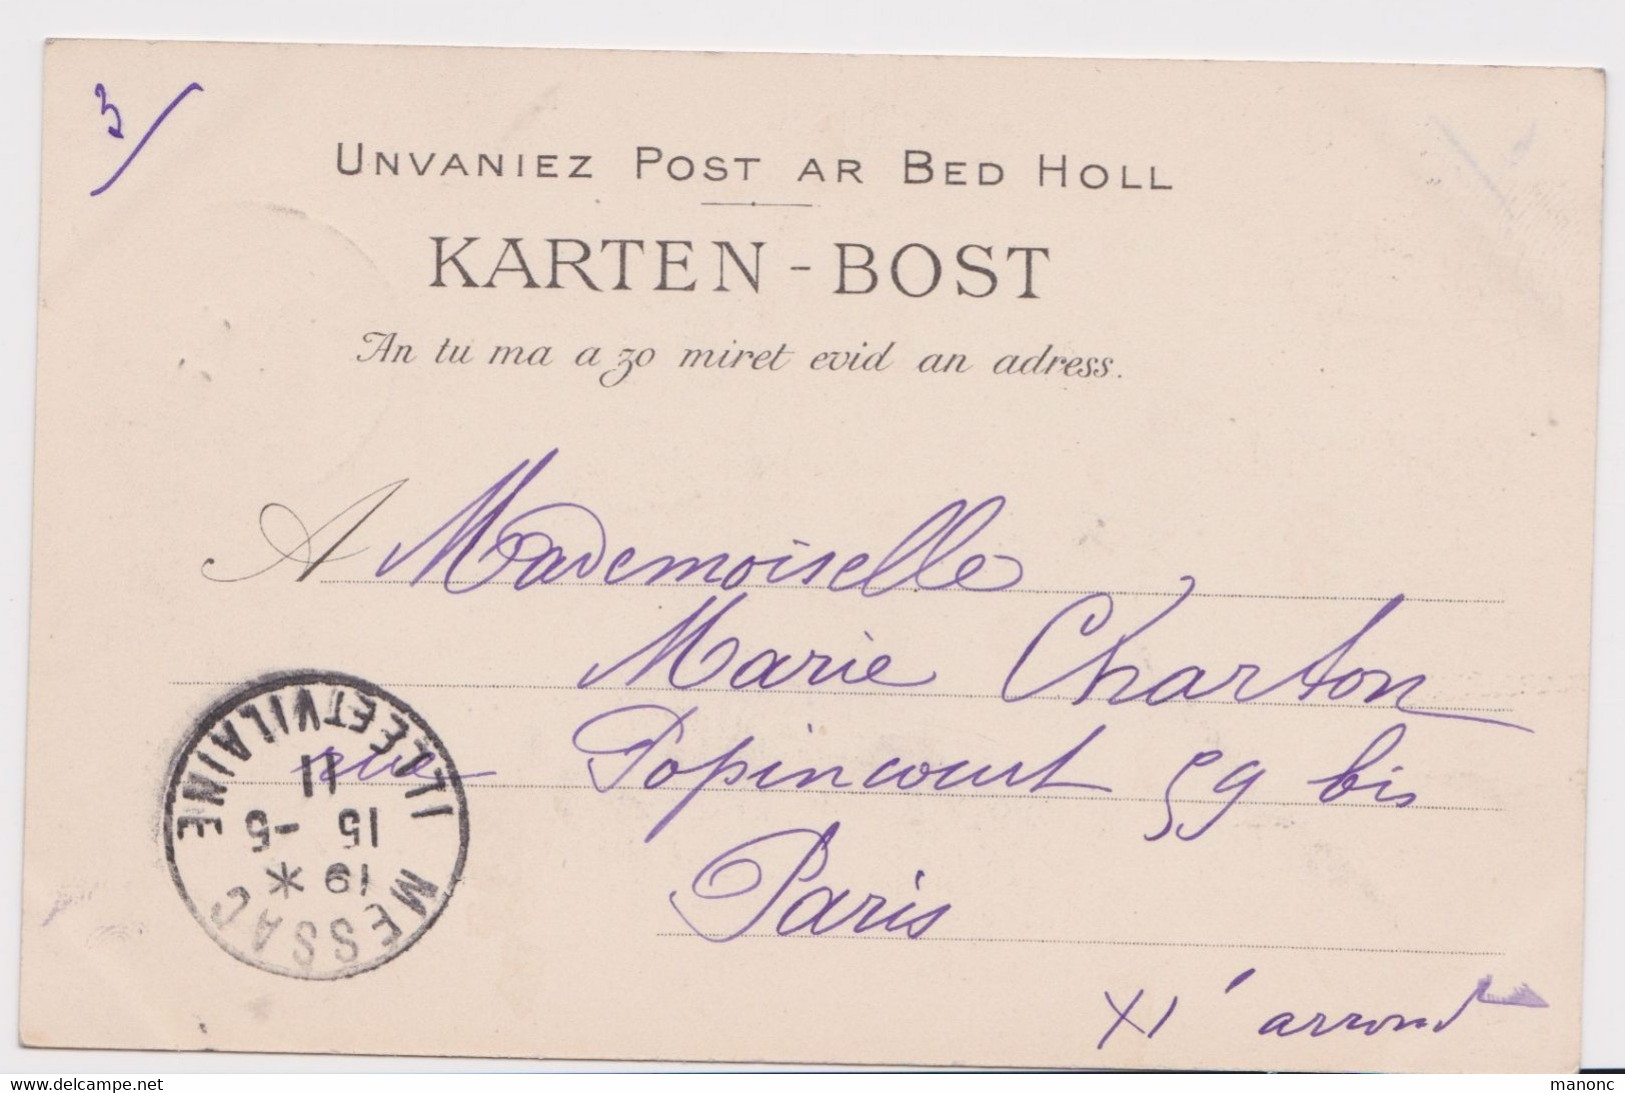 3/
UNVANIEZ POST AR BED HOLL
KARTEN-BOST
An tu ma a zo miret evid an adress.
A Mademoiselle
Marie Charton
rue Popincourt 59 bis
Paris
XIe arrond
MESSAC
19 *
15 -5
11
ILLE ET VILAINE
www.delcampe.net
manonc